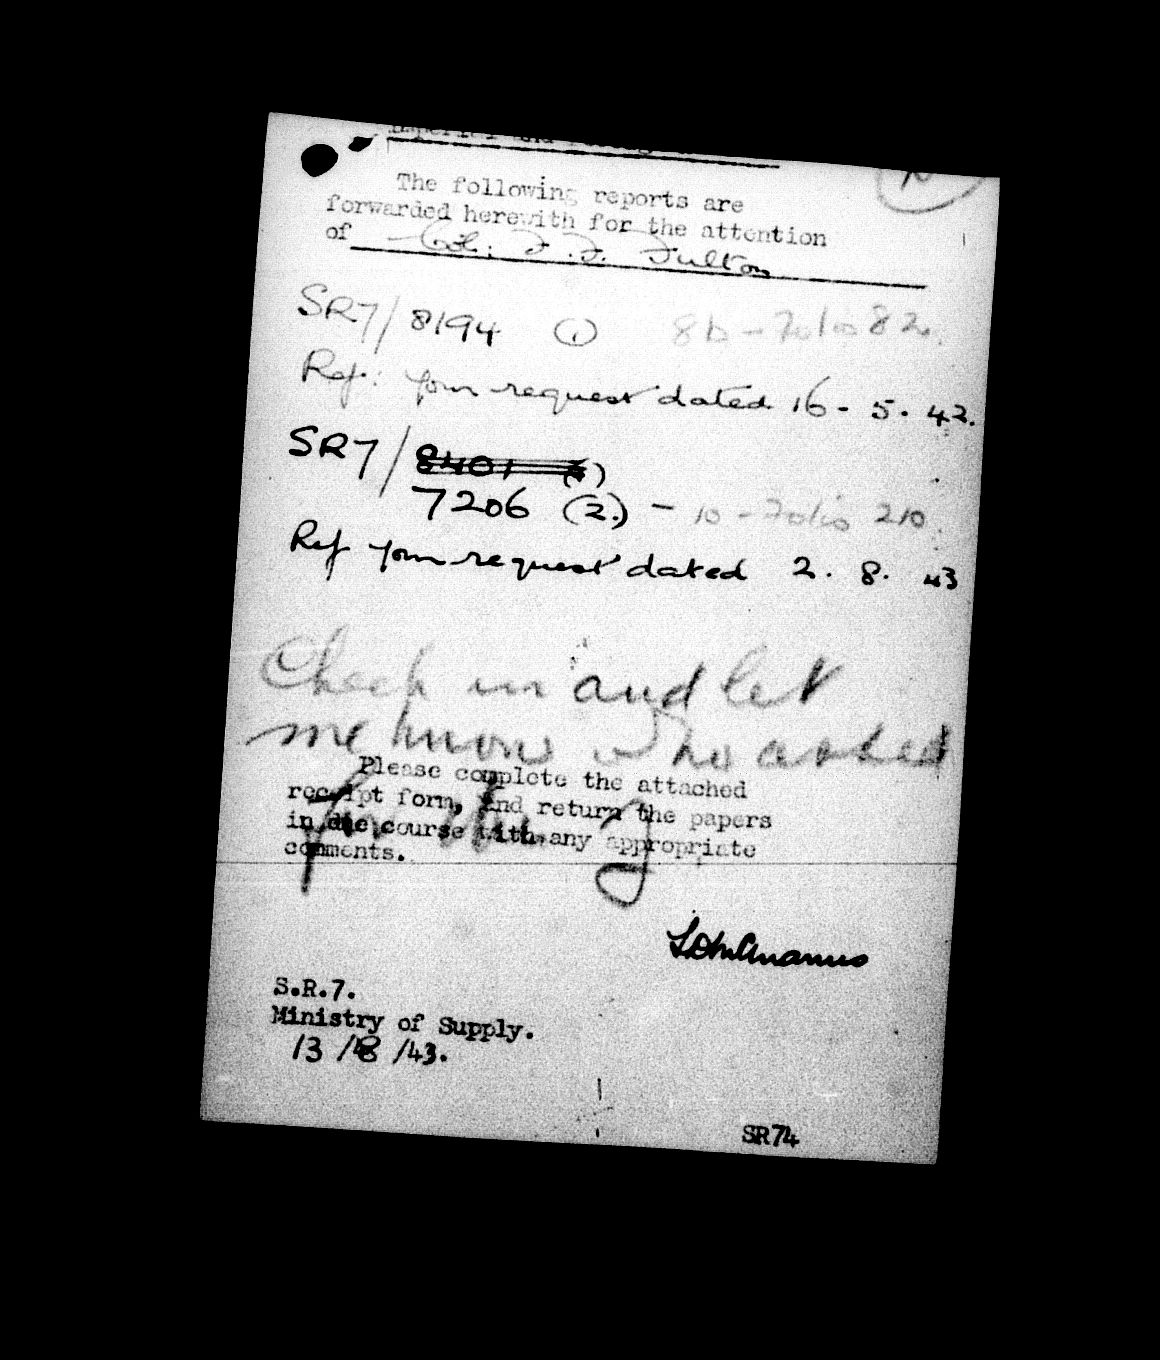 The following reports are
forwarded herewith for the attention
of Col. F.F. Fulton
SR7/8194 (1) 8b - Folio 82.
Ref: your request dated 16 - 5 . 42.
SR7/8401
7206 (2.) - 10 - Folio 210
Ref your request dated 2 . 8 . 43
Check in and let
me know who asked
Please complete the attached
receipt form, and return the papers
in due course with any appropriate
comments.
S.R.7.
Ministry of Supply.
13 /8 /43.
SR74